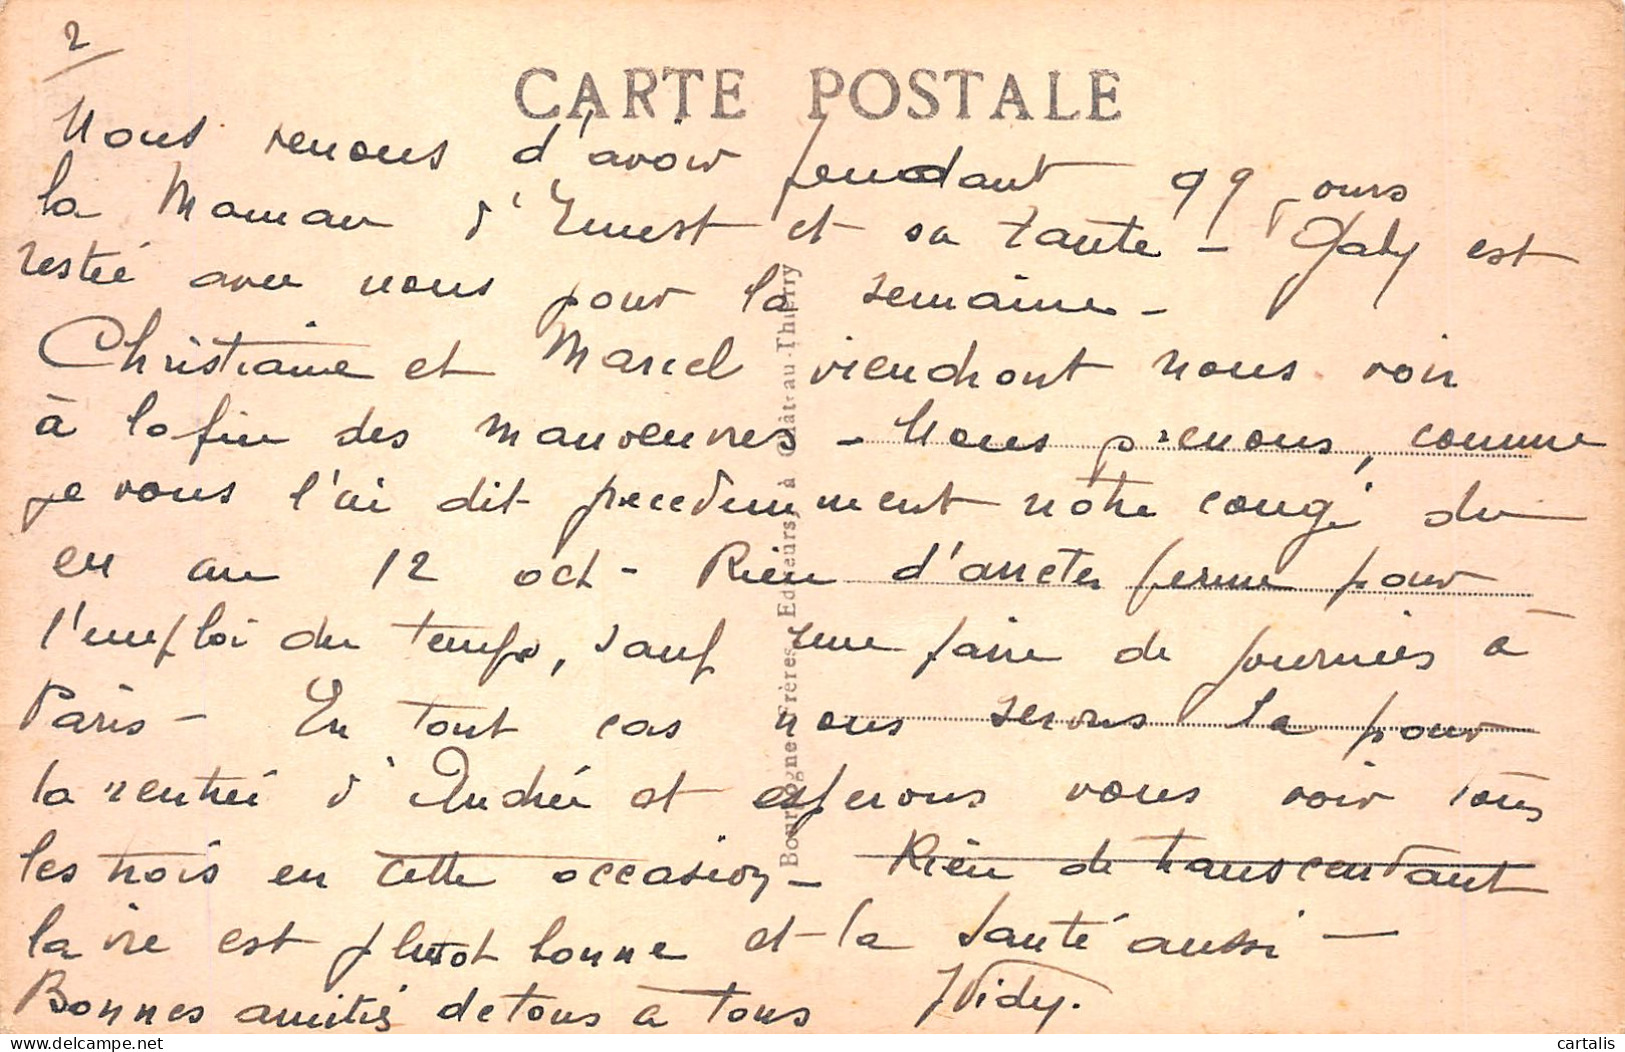 2
CARTE POSTALE
Nous venons d'avoir pendant 99 jours
la Maman d'Ernest et sa tante - Gaby est
restée avec nous pour la semaine -
Christiane et Marcel viendront nous voir
à la fin des manœuvres - Nous prenons, comme
je vous l'ai dit precedemment notre congé du
au 12 oct - Rien d'arreter ferme pour
l'emploi du temps, sauf une faire de journées à
Paris - En tout cas nous serons la pour
la rentrée d'Andrée et esperons vous voir tous
les trois en cette occasion - Rien de transcendant
la vie est plutot bonne et la santé aussi -
Bonnes amitiés de tous a tous
Bourgogne Frères, Editeurs, à Chât-au-Thierry
cartalis